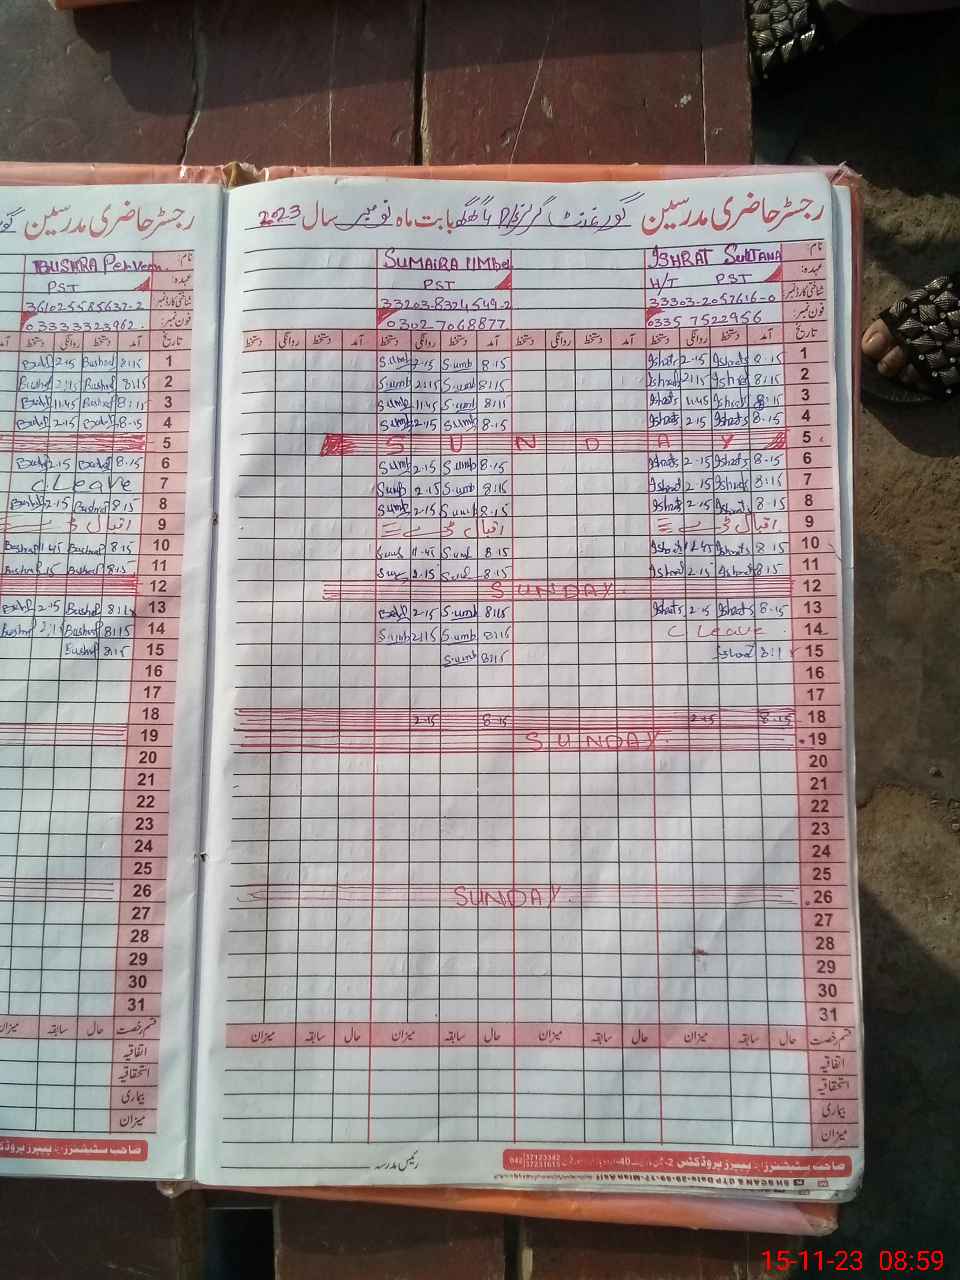 رجسٹر حاضری مدرسین
رجسٹر حاضری مدرسین گورنمنٹ گرلز بابت ماہ نومبر سال 2023
نام:
BUSHRA Perveen
عہدہ:
PST
شناختی کارڈ نمبر
36102-5585637-2
فون نمبر:
03333323962
تاریخ آمد دستخط روانگی دستخط آمد
1 8:15 Bushra 2:15
2 8:15 Bushra 2:15
3 8:15 Bushra 11:45
4 8:15 2:15
5
6 8:15 2:15
7 C Leave
8 8:15 Bushra 2:15
9 اقبال ڈے
10 8:15 Bushra 1:45 Bushra
11 8:15 Bushra Bushra
12
13 Bushra 2:15
14 8:15 Bushra Bushra
15 8:15 Bushra
16
17
18
19
20
21
22
23
24
25
26
27
28
29
30
31
قسم رخصت حال سابقہ میزان
اتفاقیہ
استحقاقیہ
بیماری
میزان
نام:
ISHRAT SULTANA
SUMAIRA
عہدہ:
H/T PST
PST
شناختی کارڈ نمبر
33303-2057616-0
33203-8324549-2
فون نمبر:
0335 7522956
0302-7068877
تاریخ آمد دستخط روانگی دستخط آمد دستخط روانگی دستخط آمد دستخط روانگی دستخط آمد دستخط روانگی دستخط
1 8:15 Ishrat 2:15 Ishrat 8:15 Sumb 2:15 Sumb
2 8:15 Ishrat 2:15 Ishrat 8:15 Sumb 2:15 Sumb
3 8:15 Ishrat 11:45 Ishrat 8:15 Sumb 11:45 Sumb
4 8:15 Ishrat 2:15 Ishrat 8:15 Sumb 2:15 Sumb
5 SUNDAY
6 8:15 Ishrat 2:15 Ishrat 8:15 Sumb 2:15 Sumb
7 8:15 Ishrat 2:15 Ishrat 8:15 Sumb 2:15 Sumb
8 8:15 Ishrat 2:15 Ishrat 8:15 Sumb 2:15 Sumb
9 اقبال ڈے اقبال ڈے
10 8:15 Ishrat 11:45 Ishrat 8:15 11:45
11 8:15 Ishrat 2:15 Ishrat 8:15 2:15
12 SUNDAY
13 8:15 Ishrat 2:15 Ishrat 8:15 Sumb 2:15
14 C Leave 8:15 Sumb 2:15 Sumb
15 Ishrat 8:15 Sumb
16
17
18 8:15 2:15 8:15 2:15
19 SUNDAY
20
21
22
23
24
25
26 SUNDAY
27
28
29
30
31
قسم رخصت حال سابقہ میزان حال سابقہ میزان حال سابقہ میزان
اتفاقیہ
استحقاقیہ
بیماری
میزان
صاحب سٹیشنرز اینڈ پیپرز پروڈکٹس
صاحب سٹیشنرز اینڈ پیپرز پروڈکٹس
رئیس مدرسہ
042 37123342
37231615
15-11-23 08:59